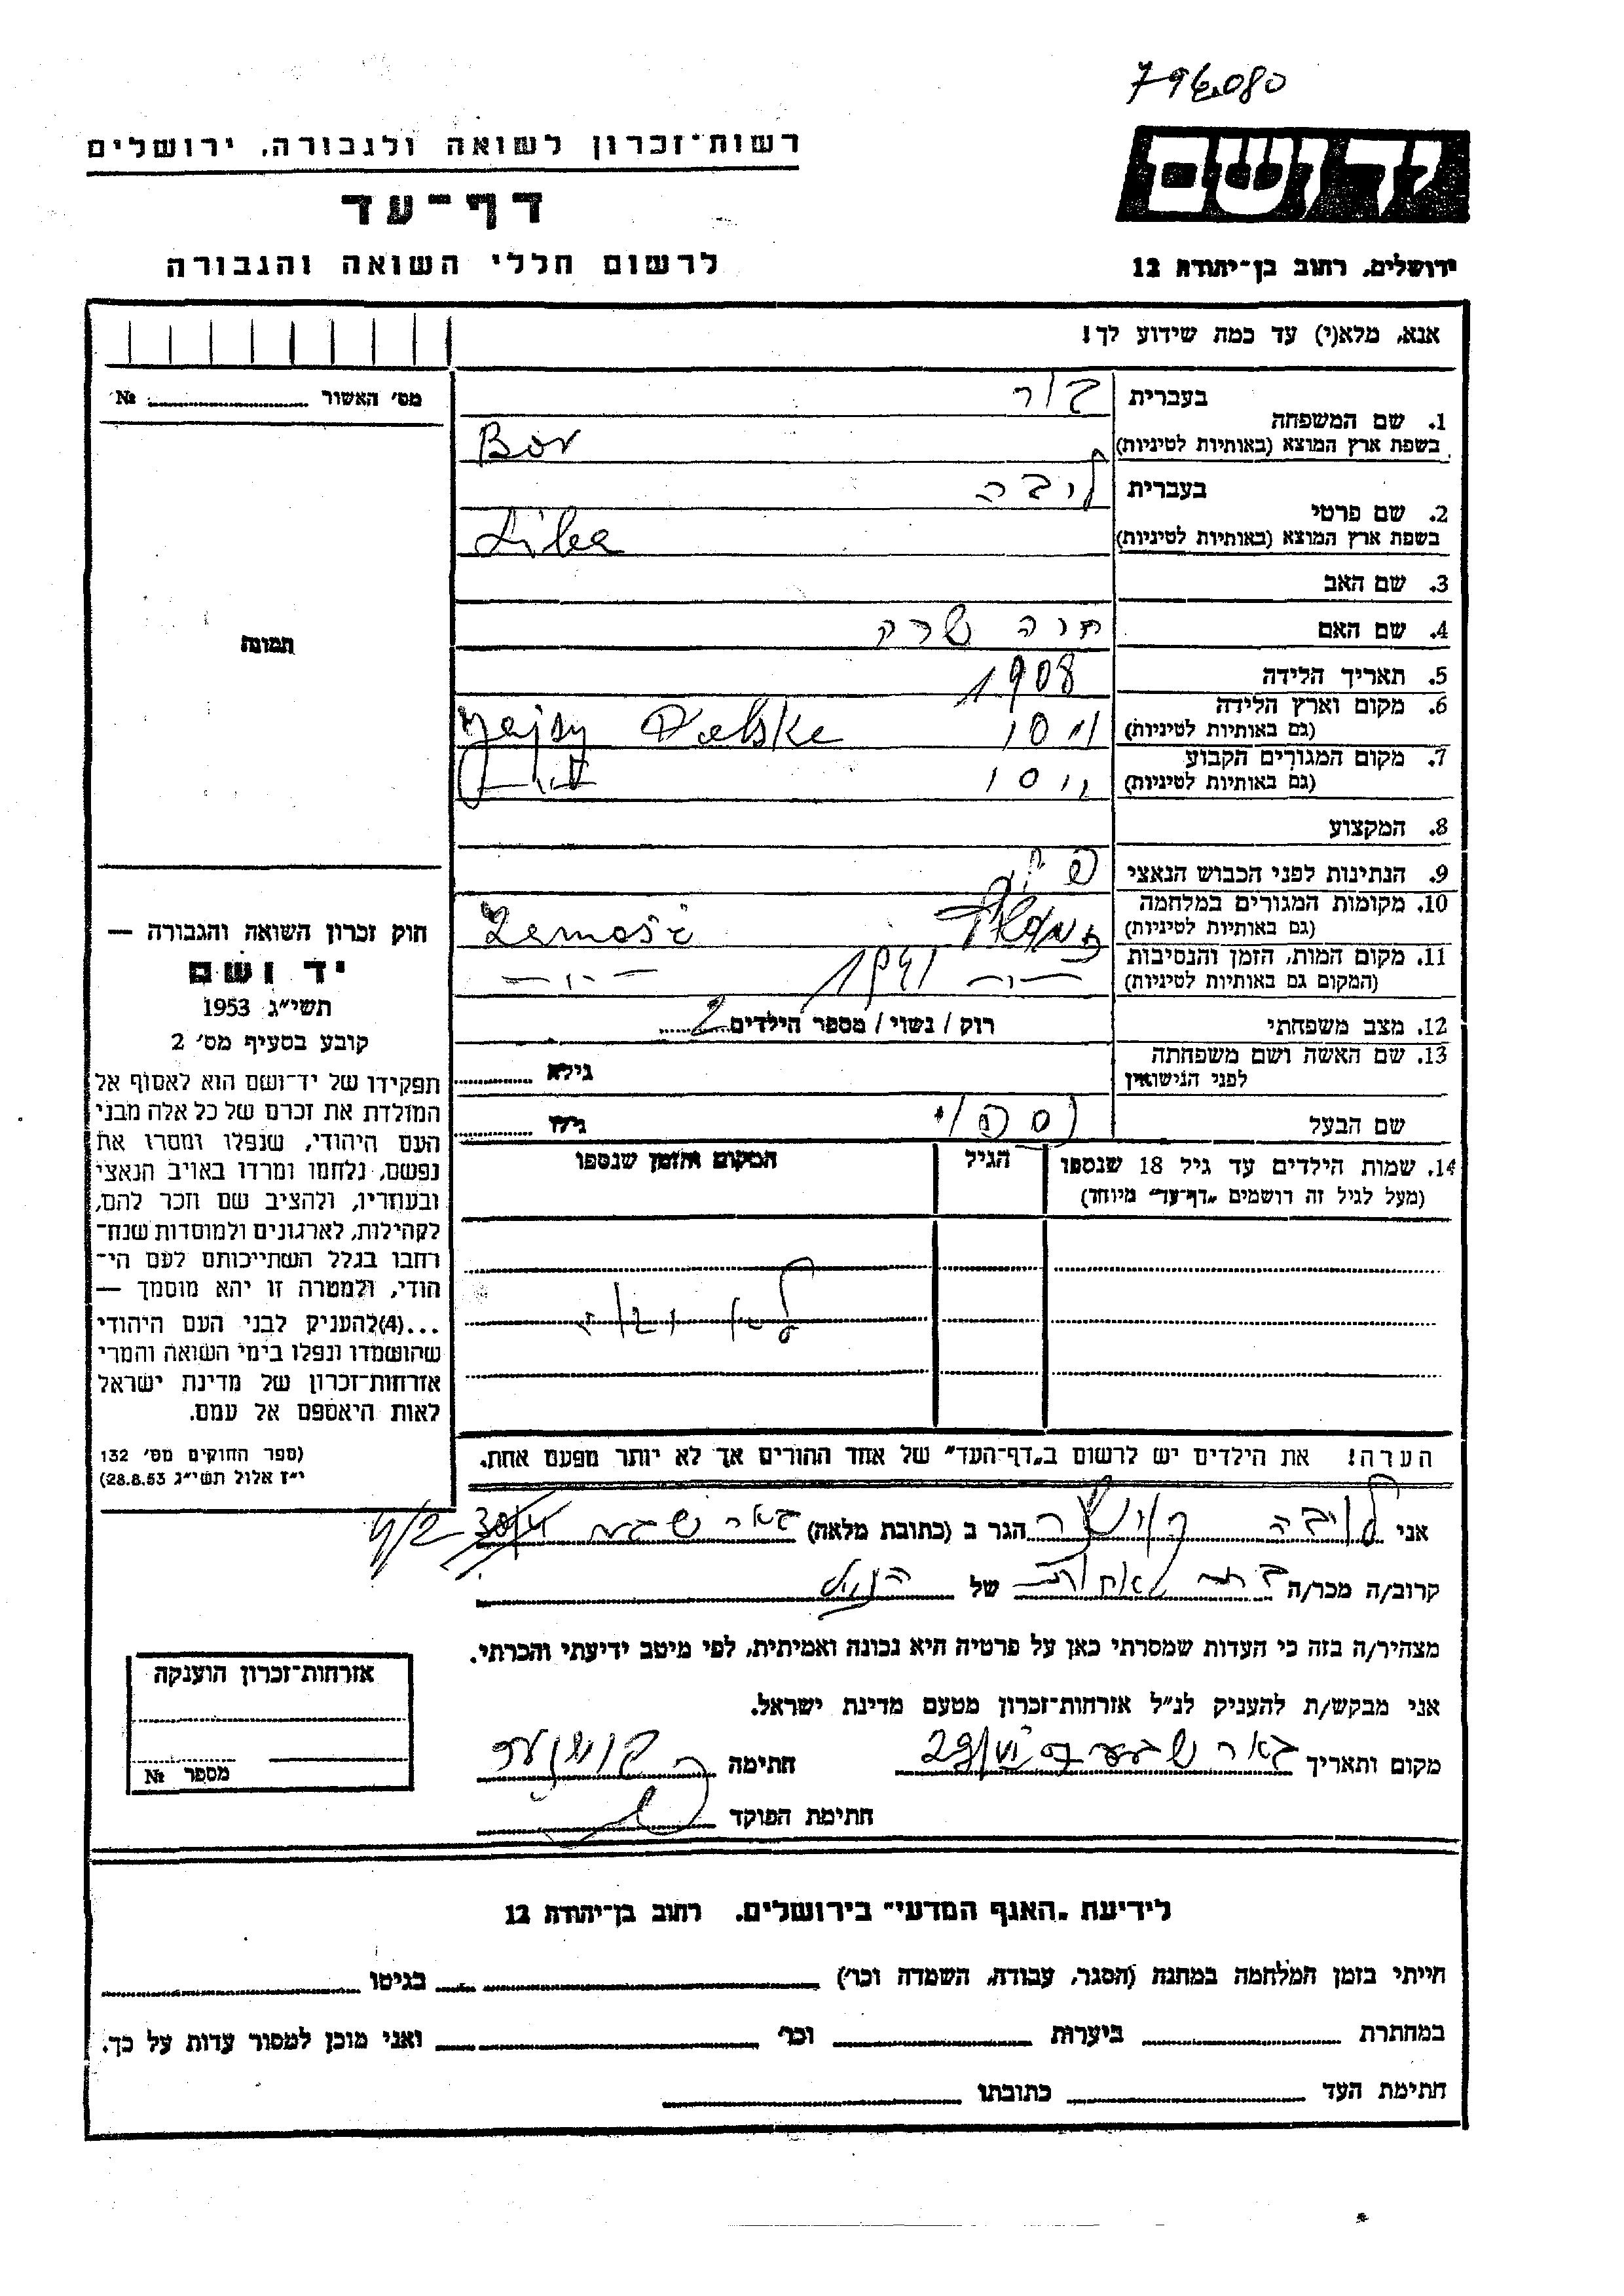 796080
רשות־זכרון לשואה ולגבורה, ירושלים
יד ושם
דף־עד
לרשום חללי השואה והגבורה
ירושלים, רחוב בן־יהודה 12
אנא, מלא(י) עד כמה שידוע לך!
מס׳ האשור № 
תמונה
בעברית בור
1. שם המשפחה
בשפת ארץ המוצא (באותיות לטיניות) Bor
בעברית ליבה
2. שם פרטי
בשפת ארץ המוצא (באותיות לטיניות) Liba
3. שם האב
4. שם האם חוה שרה
5. תאריך הלידה 1908
6. מקום וארץ הלידה
(גם באותיות לטיניות)
7. מקום המגורים הקבוע
(גם באותיות לטיניות)
8. המקצוע
9. הנתינות לפני הכבוש הנאצי
10. מקומות המגורים במלחמה
(גם באותיות לטיניות) Zamość
11. מקום המות, הזמן והנסיבות
(המקום גם באותיות לטיניות) —ו— 1941 —ו—
12. מצב משפחתי רוק / נשוי / מספר הילדים 2
13. שם האשה ושם משפחתה
לפני הנישואין גילא
שם הבעל גילו
14. שמות הילדים עד גיל 18 שנספו הגיל המקום והזמן שנספו
(מעל לגיל זה רושמים „דף־עד״ מיוחד)
הערה! את הילדים יש לרשום ב„דף־העד״ של אחד ההורים אך לא יותר מפעם אחת.
חוק זכרון השואה והגבורה —
יד ושם
תשי״ג 1953
קובע בסעיף מס׳ 2
תפקידו של יד־ושם הוא לאסוף אל
המולדת את זכרם של כל אלה מבני
העם היהודי, שנפלו ומסרו את
נפשם, נלחמו ומרדו באויב הנאצי
ובעוזריו, ולהציב שם וזכר להם,
לקהילות, לארגונים ולמוסדות שנח־
רחבו בגלל השתייכותם לעם הי־
הודי, ולמטרה זו יהא מוסמך —
...(4)להעניק לבני העם היהודי
שהושמדו ונפלו בימי השואה והמרי
אזרחות־זכרון של מדינת ישראל
לאות היאספם אל עמם.
(ספר החוקים מס׳ 132
י״ז אלול תשי״ג 28.8.53)
אני ליבה הגר ב (כתובת מלאה) באר שבע
קרוב/ה מכר/ה בת אחות של הנ״ל
מצהיר/ה בזה כי העדות שמסרתי כאן על פרטיה היא נכונה ואמיתית, לפי מיטב ידיעתי והכרתי.
אני מבקש/ת להעניק לנ״ל אזרחות־זכרון מטעם מדינת ישראל.
מקום ותאריך באר שבע חתימה
חתימת הפוקד
אזרחות־זכרון הוענקה
מספר №
לידיעת „האגף המדעי״ בירושלים. רחוב בן־יהודה 12
הייתי בזמן המלחמה במחנה (הסגר, עבודה, השמדה וכו׳) בגיטו
במחתרת ביערות וכו׳ ואני מוכן למסור עדות על כך.
חתימת העד כתובתו